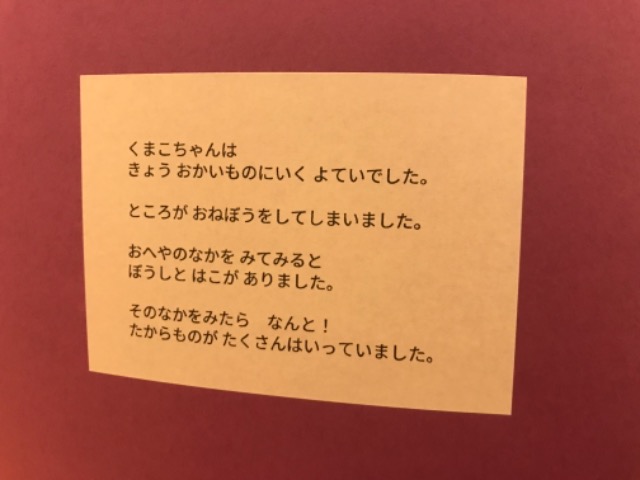 くまこちゃんは
きょう おかいものにいく よていでした。
ところが おねぼうをしてしまいました。
おへやのなかを みてみると
ぼうしと はこが ありました。
そのなかをみたら　なんと！
たからものが たくさんはいっていました。